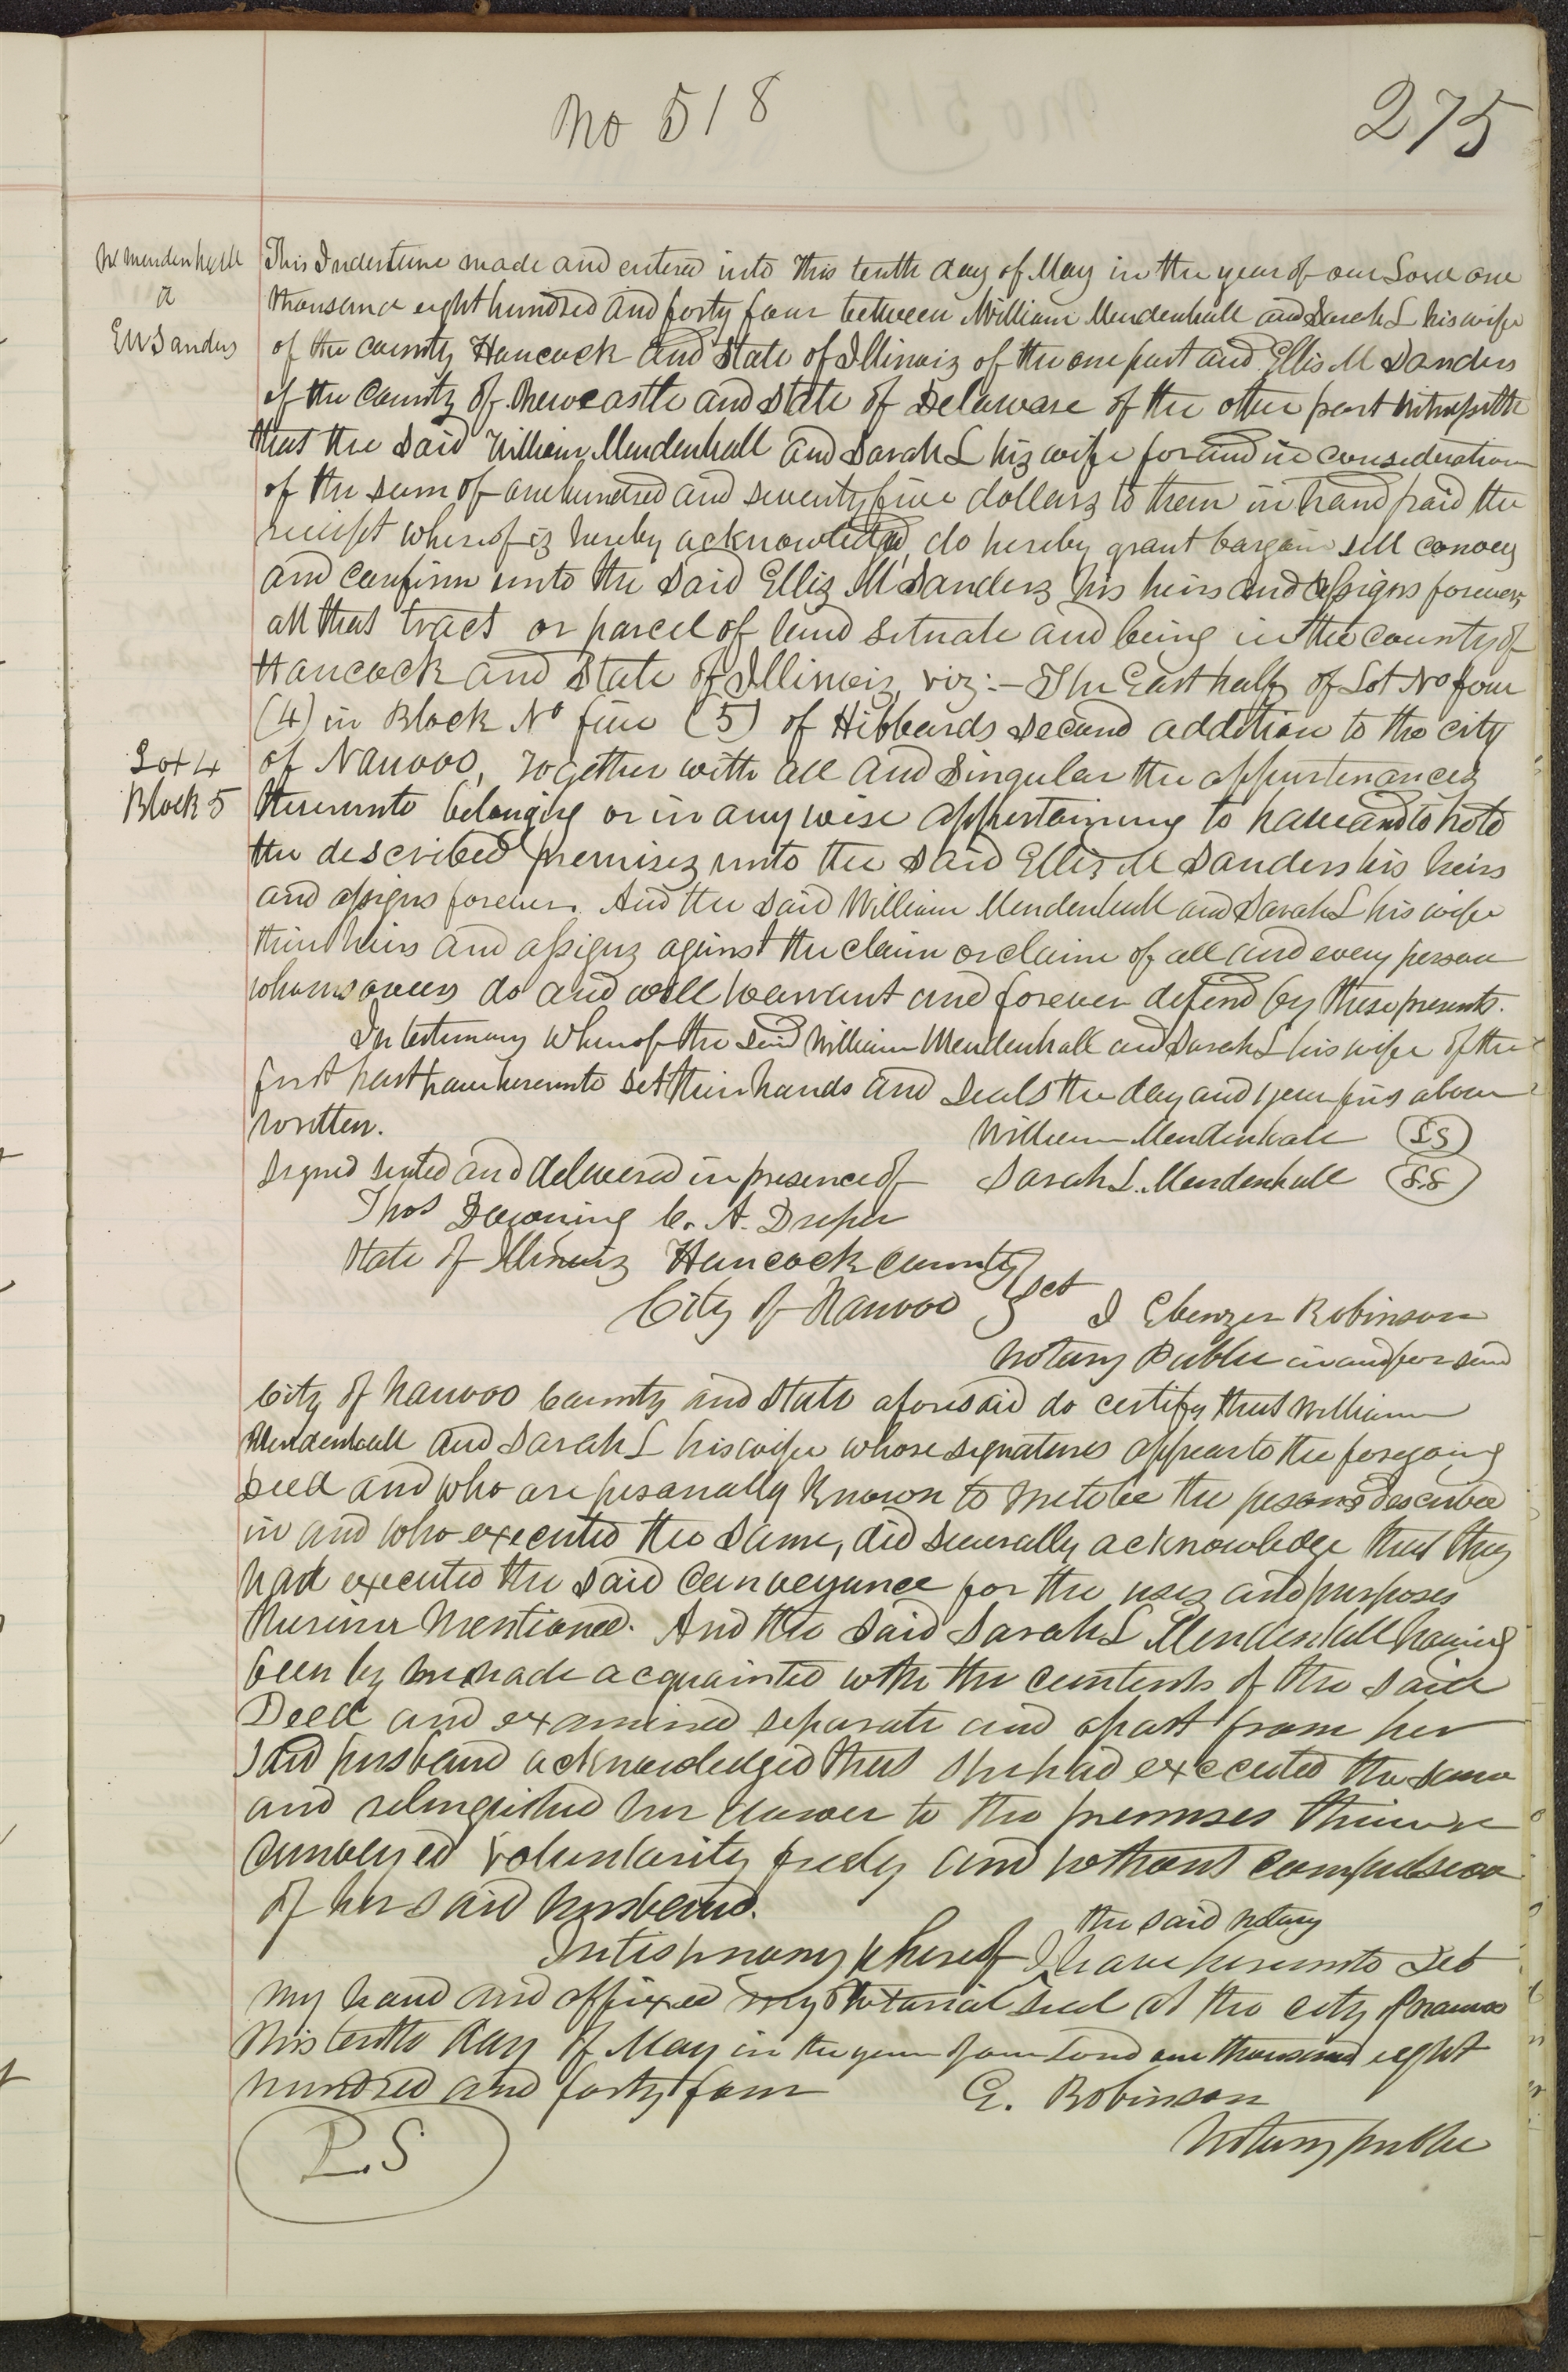 No 518
275
Wm Mendenhall
a
EM Sanders
This Indenture made and entered into this tenth day of May in the year of our Lord one
thousand eight hundred and forty four between William Mendenhall and Sarah L his wife
of the county Hancock and State of Illinois of the one part and Ellis M Sanders
of the County of Newcastle and State of Delaware of the other part Witnesseth
that the said William Mendenhall and Sarah L his wife for and in consideration
of the sum of one hundred and seventy five dollars to them in hand paid the
receipt whereof is hereby acknowledged, do hereby grant bargain sell convey
and confirm unto the said Ellis M Sanders his heirs and assigns forever,
all that tract or parcel of land situate and being in the county of
Hancock and State of Illinois, viz:- The East half of Lot No four
(4) in Block No five (5) of Hibbards Second addition to the city
Lot 4
Block 5
of Nauvoo, Together with all and singular the appurtenances
thereunto belonging or in any wise appertaining to have and to hold
the described premises unto the said Ellis M Sanders his heirs
and assigns forever. And the said William Mendenhall and Sarah L his wife
their heirs and assigns against the claim or claims of all and every person
whomsoever do and will warrant and forever defend by these presents.
In testimony whereof the said William Mendenhall and Sarah L his wife of the
first part have hereunto set their hands and seals the day and year first above
written.
William Mendenhall (LS)
Signed sealed and delivered in presence of Sarah L. Mendenhall (LS)
Thos Downing C. A. Draper
State of Illinois Hancock County
City of Nauvoo } Sct I Ebenzer Robinson
Notary Public in and for said
City of Nauvoo County and State aforesaid do certify that William
Mendenhall and Sarah L his wife whose signatures appear to the foregoing
Deed and who are personally known to me to be the persons described
in and who executed the same, did severally acknowledge that they
had executed the said Conveyance for the uses and purposes
therein mentioned. And the said Sarah L Mendenhall having
been by me made acquainted with the contents of the said
Deed and examined separate and apart from her
said husband acknowledged that she had executed the same
and relinquished her dower to the premises therein
conveyed voluntarily freely and without compulsion
of her said husband.
the said notary
In testimony whereof I have hereunto set
my hand and affixed my Notarial Seal at the city of Nauvoo
this tenth day of May in the year of our Lord one thousand eight
hundred and forty four E. Robinson
Notary public
L.S